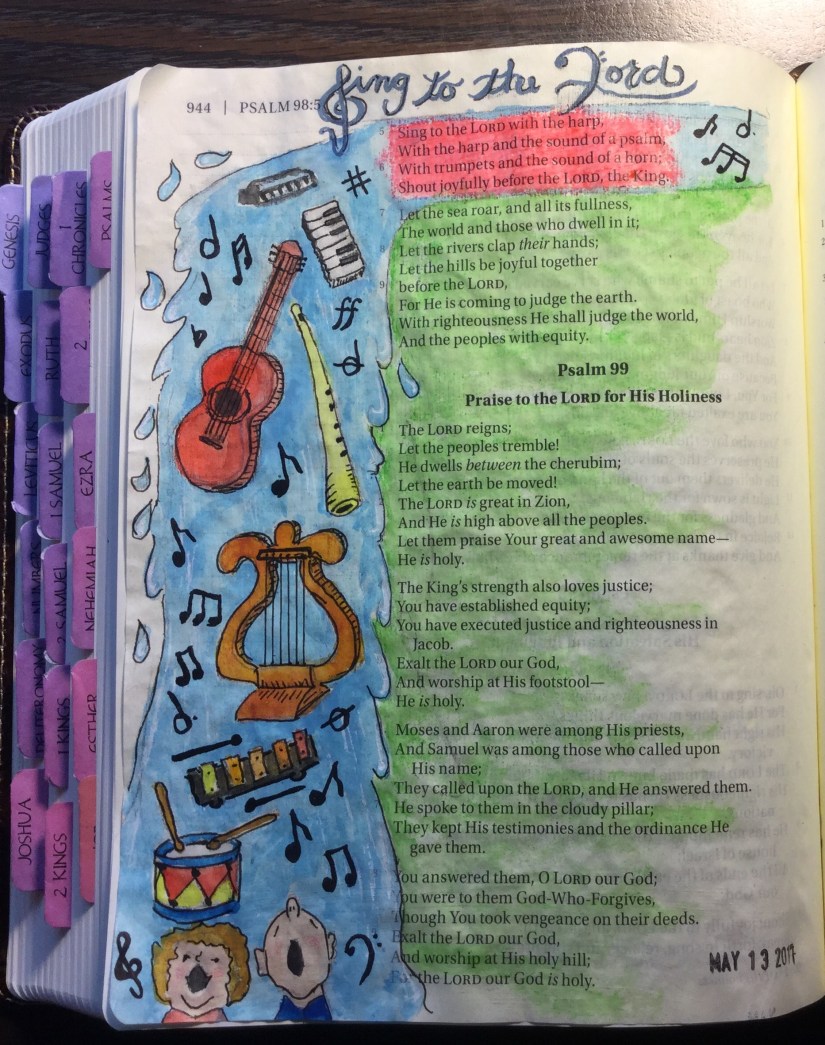 Sing to the Lord
944 | PSALM 98:5
5 Sing to the LORD with the harp,
With the harp and the sound of a psalm,
6 With trumpets and the sound of a horn;
Shout joyfully before the LORD, the King.
7 Let the sea roar, and all its fullness,
The world and those who dwell in it;
Let the rivers clap their hands;
Let the hills be joyful together
9 before the LORD,
For He is coming to judge the earth.
With righteousness He shall judge the world,
And the peoples with equity.
Psalm 99
Praise to the LORD for His Holiness
The LORD reigns;
Let the peoples tremble!
He dwells between the cherubim;
Let the earth be moved!
The LORD is great in Zion,
And He is high above all the peoples.
Let them praise Your great and awesome name—
He is holy.
The King's strength also loves justice;
You have established equity;
You have executed justice and righteousness in
Jacob.
Exalt the LORD our God,
And worship at His footstool—
He is holy.
Moses and Aaron were among His priests,
And Samuel was among those who called upon
His name;
They called upon the LORD, and He answered them.
He spoke to them in the cloudy pillar;
They kept His testimonies and the ordinance He
gave them.
You answered them, O LORD our God;
You were to them God-Who-Forgives,
Though You took vengeance on their deeds.
Exalt the LORD our God,
And worship at His holy hill;
For the LORD our God is holy.
MAY 13 2017
ff
GENESIS
EXODUS
LEVITICUS
NUMBERS
DEUTERONOMY
JOSHUA
JUDGES
RUTH
1 SAMUEL
2 SAMUEL
1 KINGS
2 KINGS
1 CHRONICLES
2
EZRA
NEHEMIAH
ESTHER
PSALMS